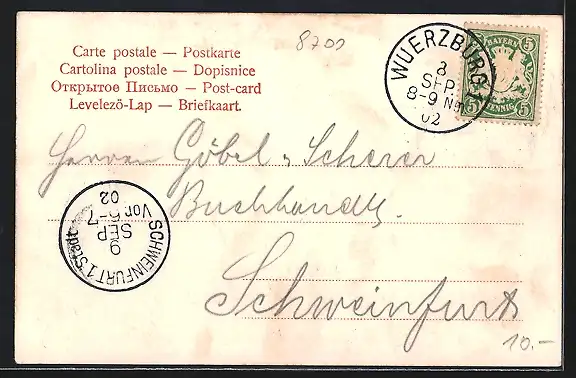 Carte postale — Postkarte
Cartolina postale — Dopisnice
Открытое Письмо — Post-card
Levelező-Lap — Briefkaart.
8700
WUERZBURG 1
8
SEP.
8-9 Nm
02
BAYERN
5 5
5 PFENNIG 5
Herren Göbel & Scherer
Buchhandlg.
Schweinfurt
SCHWEINFURT 1 Stadt
9
SEP
Vor. 6-7
02
10.-